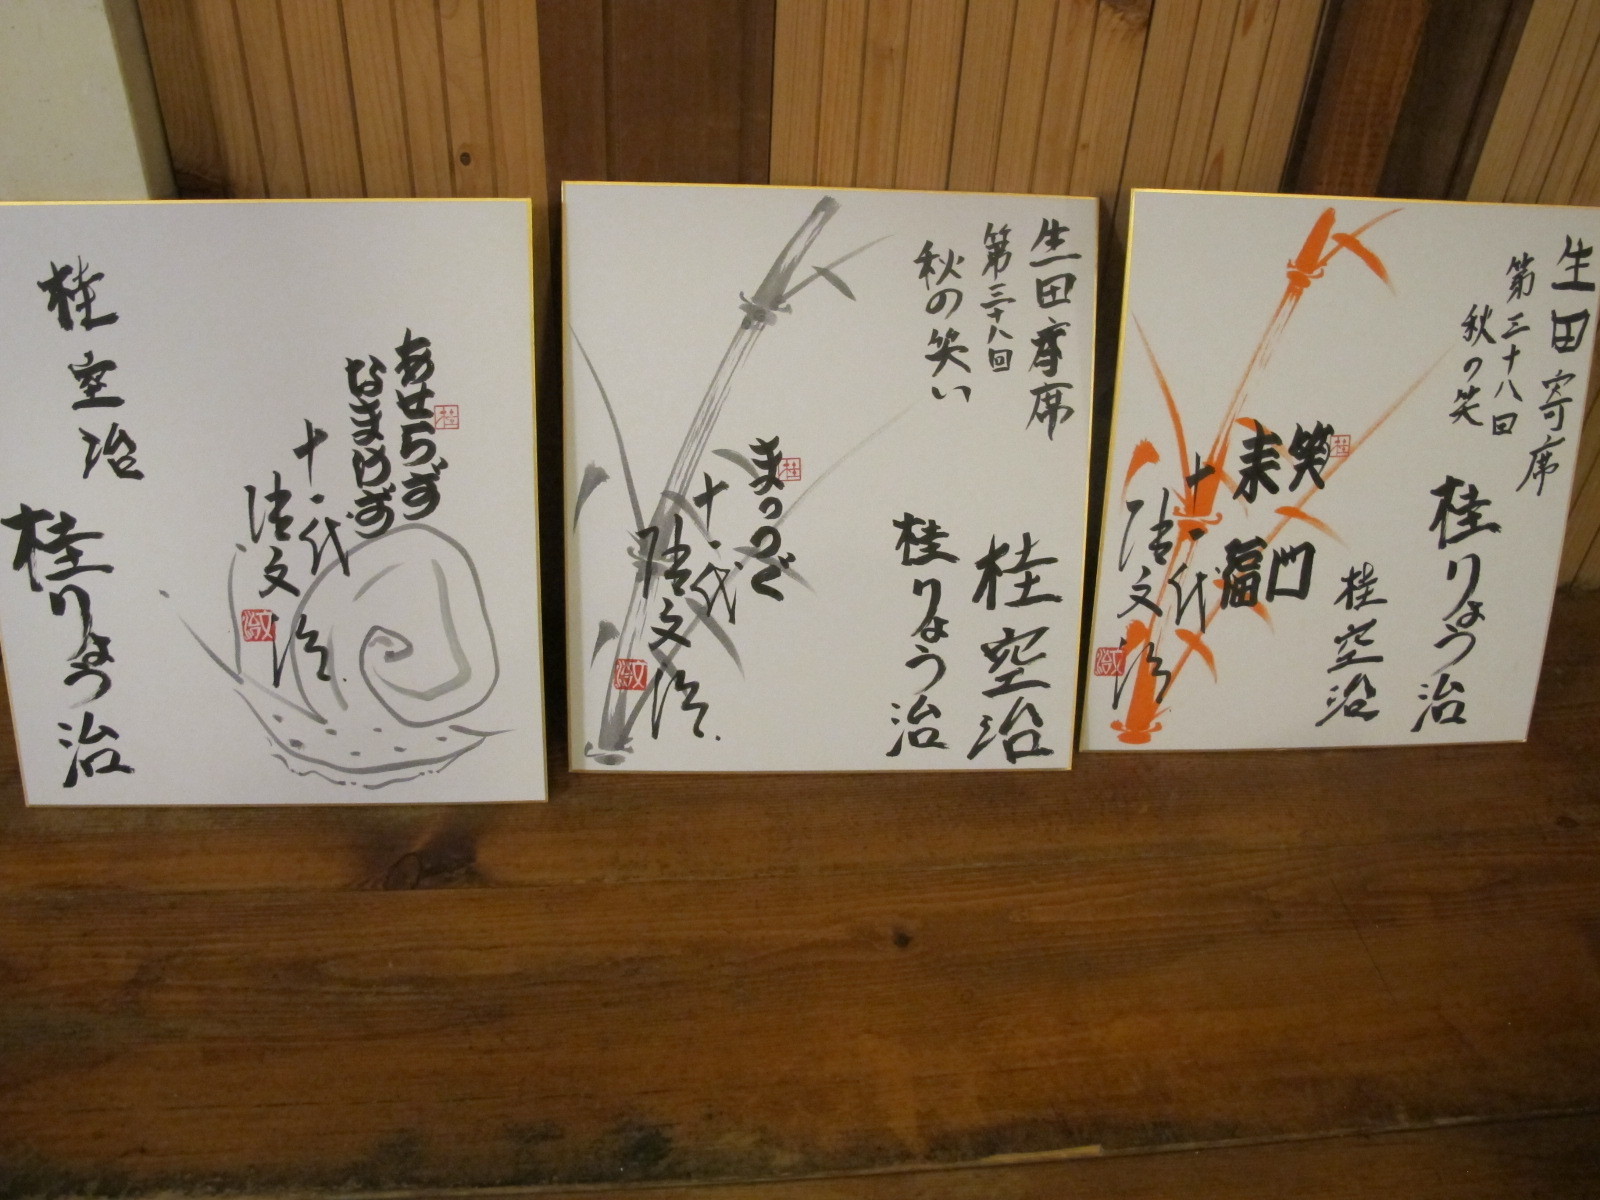 あせらず
なまけず
十一代
桂文治
桂空治
桂りょう治
生田寄席
第三十八回
秋の笑い
桂空治
桂りょう治
まっつぐ
十一代
桂文治
生田寄席
第三十八回
秋の笑
桂りょう治
桂空治
笑門
来福
十一代
桂文治